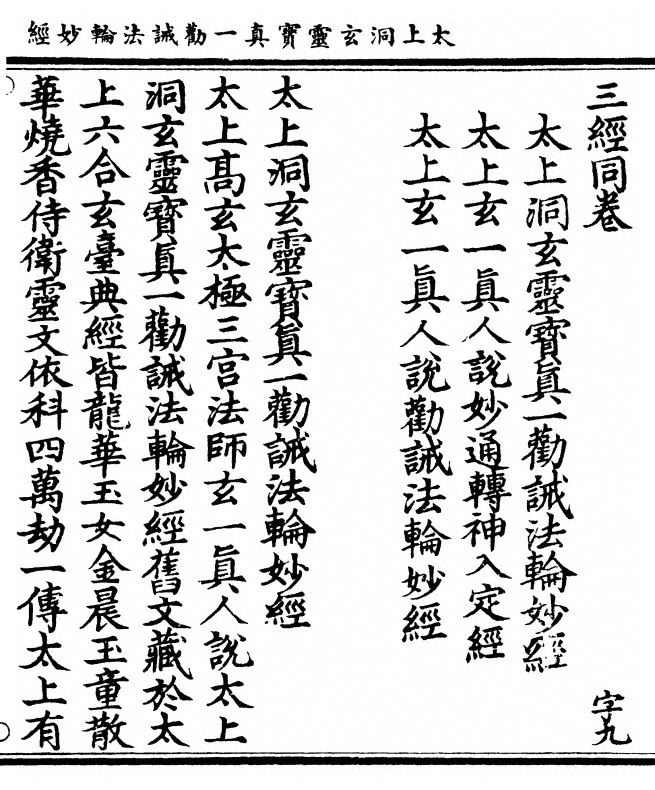 太上洞玄靈寳真一勸誡法輪妙經
三經同卷
字九
太上洞玄靈寳眞一勸誡法輪妙經
太上玄一眞人說妙通轉神入定經
太上玄一眞人說勸誡法輪妙經
太上洞玄靈寳眞一勸誡法輪妙經
太上髙玄大極三宫法師玄一眞人說太上
洞玄靈寳眞一勸誡法輪妙經舊文藏於太
上六合玄臺典經皆龍華玉女金晨玉童散
華燒香侍衛靈文依科四萬劫一傳太上有